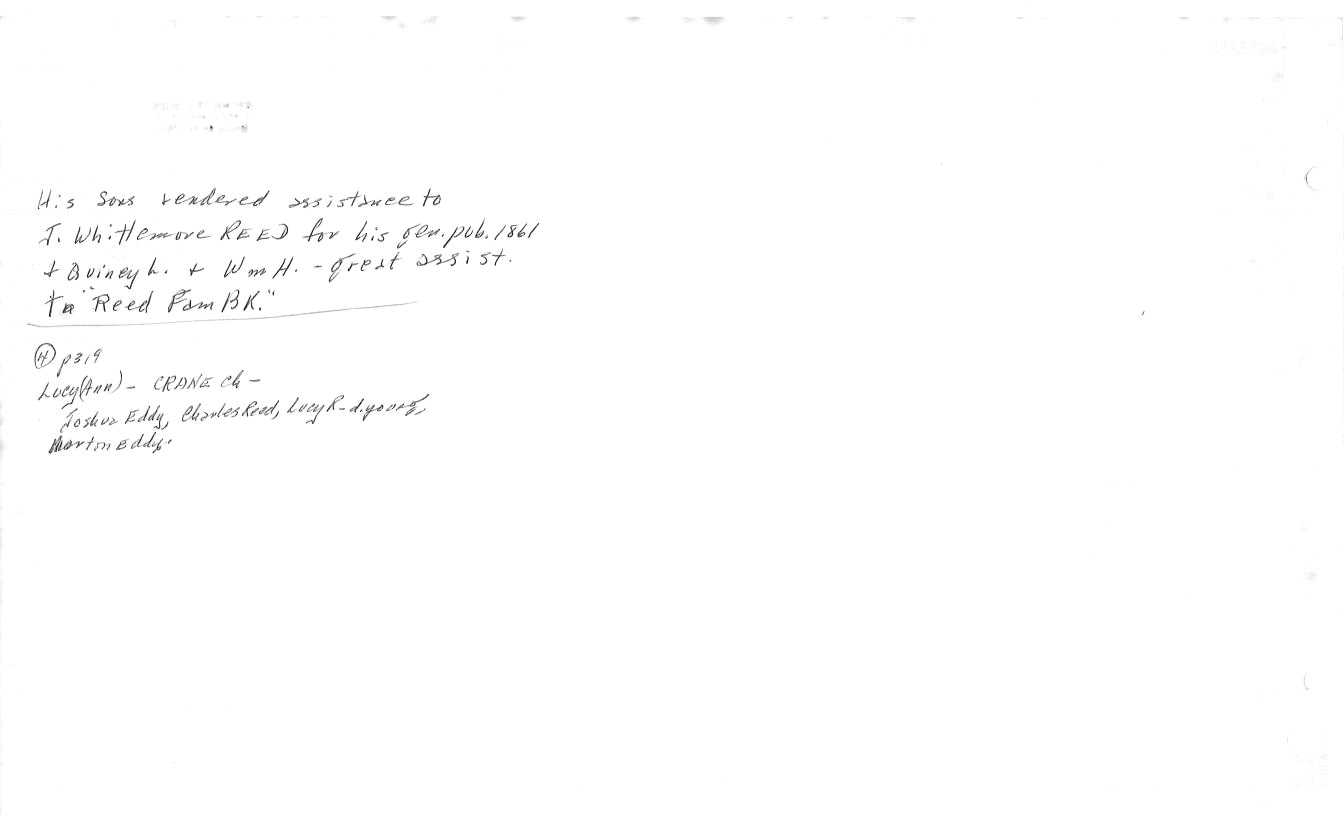 His Sons rendered assistance to
J. Whittemore REED for his gen. pub. 1861
+ Quincy L. + Wm H. - great assist.
to "Reed Fam BK."
(H) p319
Lucy (Ann) - CRANE ch -
Joshua Eddy, Charles Reed, Lucy R - d. young,
Morton Eddy.